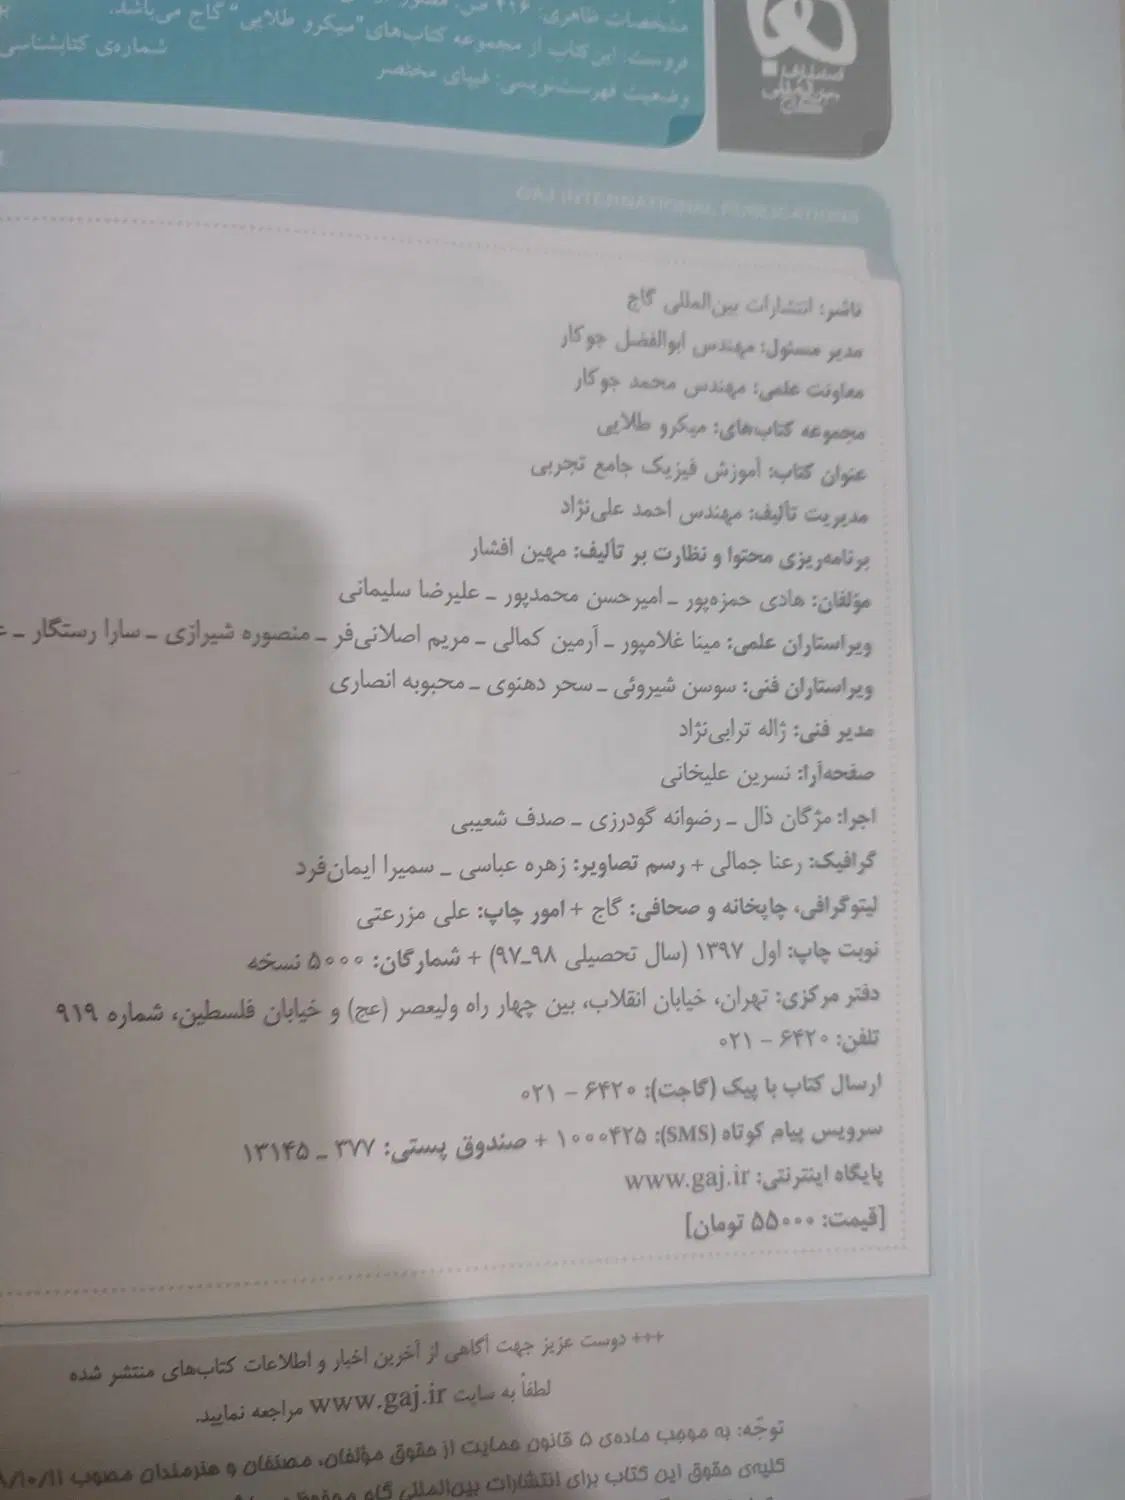 مشخصات ظاهری: ۴۱۶ ص.
فروست: این کتاب از مجموعه کتاب‌های "میکرو طلایی" گاج می‌باشد.
وضعیت فهرست‌نویسی: فیپای مختصر
شماره‌ی کتابشناسی
انتشارات بین‌المللی گاج
GAJ INTERNATIONAL PUBLICATIONS
ناشر: انتشارات بین‌المللی گاج
مدیر مسئول: مهندس ابوالفضل جوکار
معاونت علمی: مهندس محمد جوکار
مجموعه کتاب‌های: میکرو طلایی
عنوان کتاب: آموزش فیزیک جامع تجربی
مدیریت تألیف: مهندس احمد علی‌نژاد
برنامه‌ریزی محتوا و نظارت بر تألیف: مهین افشار
مؤلفان: هادی حمزه‌پور ـ امیرحسن محمدپور ـ علیرضا سلیمانی
ویراستاران علمی: مینا غلامپور ـ آرمین کمالی ـ مریم اصلانی‌فر ـ منصوره شیرازی ـ سارا رستگار ـ
ویراستاران فنی: سوسن شیروئی ـ سحر دهنوی ـ محبوبه انصاری
مدیر فنی: ژاله ترابی‌نژاد
صفحه‌آرا: نسرین علیخانی
اجرا: مژگان ذال ـ رضوانه گودرزی ـ صدف شعیبی
گرافیک: رعنا جمالی + رسم تصاویر: زهره عباسی ـ سمیرا ایمان‌فرد
لیتوگرافی، چاپخانه و صحافی: گاج + امور چاپ: علی مزرعتی
نوبت چاپ: اول ۱۳۹۷ (سال تحصیلی ۹۸ـ۹۷) + شمارگان: ۵۰۰۰ نسخه
دفتر مرکزی: تهران، خیابان انقلاب، بین چهار راه ولیعصر (عج) و خیابان فلسطین، شماره ۹۱۹
تلفن: ۶۴۲۰ – ۰۲۱
ارسال کتاب با پیک (گاجت): ۶۴۲۰ – ۰۲۱
سرویس پیام کوتاه (SMS): ۱۰۰۰۴۲۵ + صندوق پستی: ۳۷۷ ـ ۱۳۱۴۵
پایگاه اینترنتی: www.gaj.ir
[قیمت: ۵۵۰۰۰ تومان]
+++ دوست عزیز جهت آگاهی از آخرین اخبار و اطلاعات کتاب‌های منتشر شده
لطفاً به سایت www.gaj.ir مراجعه نمایید.
توجّه: به موجب ماده‌ی ۵ قانون حمایت از حقوق مؤلفان، مصنفان و هنرمندان مصوب
کلیه‌ی حقوق این کتاب برای انتشارات بین‌المللی گاج